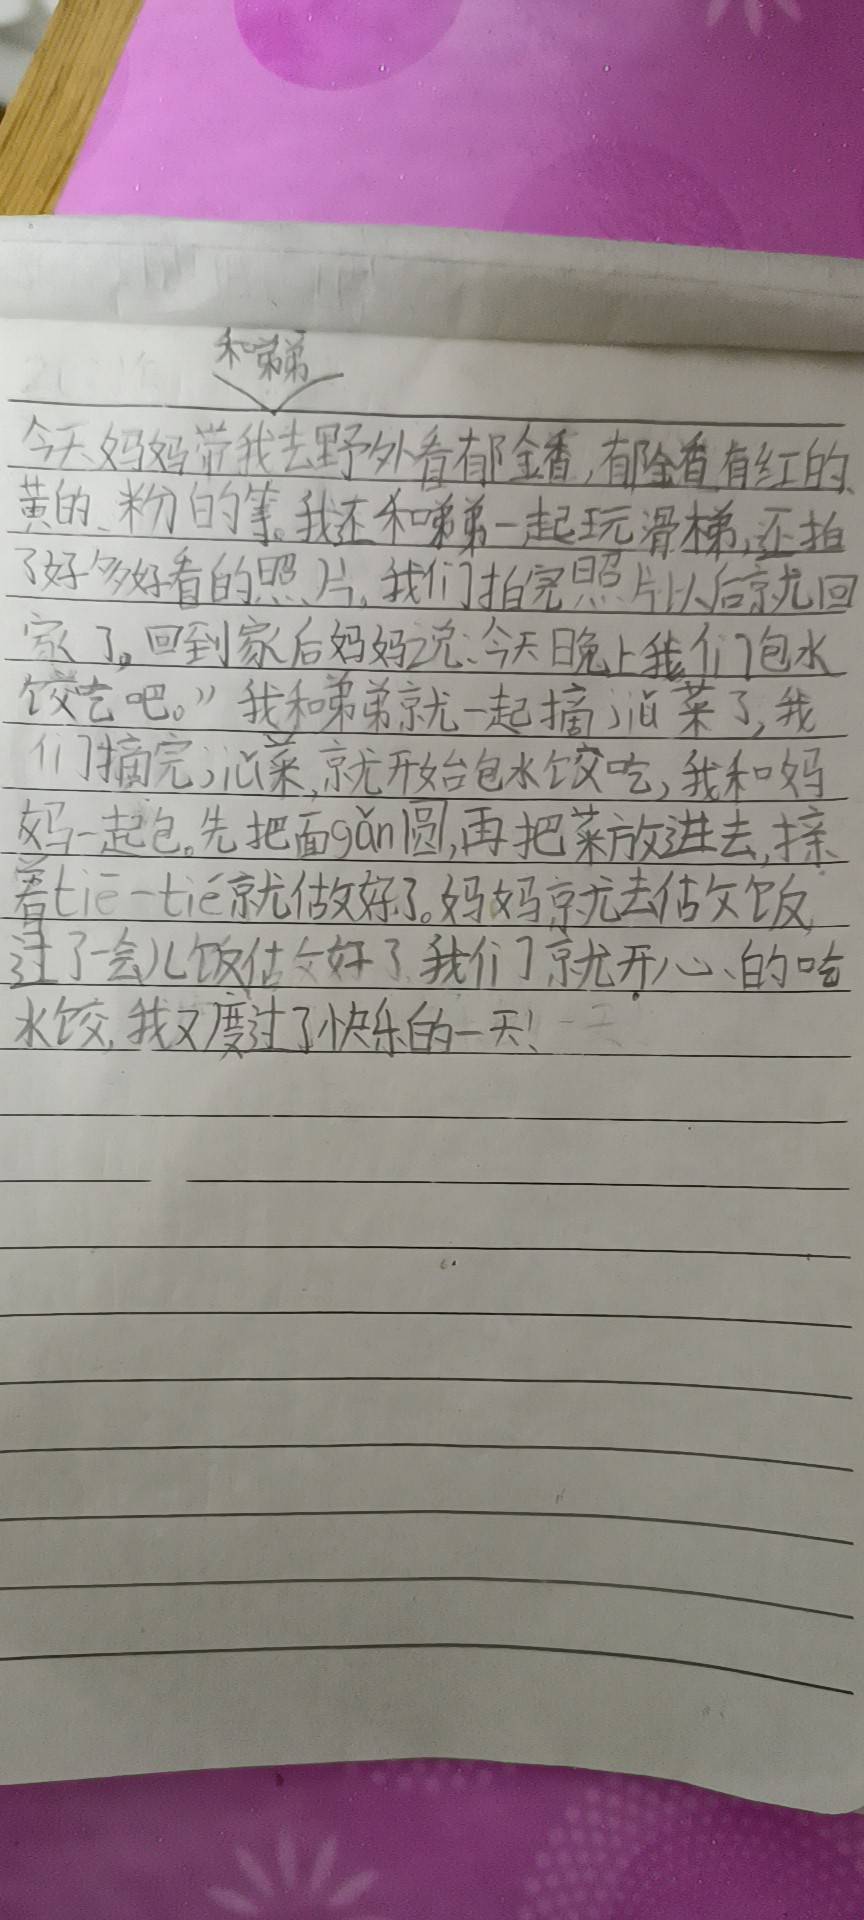 和弟弟
今天妈妈带我去野外看郁金香,郁金香有红的、
黄的、粉的等。我还和弟弟一起玩滑梯,还拍
了好多好看的照片。我们拍完照片以后就回
家了。回到家后妈妈说:今天晚上我们包水
饺吃吧。”我和弟弟就一起摘油菜了,我
们摘完油菜,就开始包水饺吃,我和妈
妈一起包。先把面gǎn圆,再把菜放进去,接
着tiē一tiē就做好了。妈妈就去做饭,
过了一会儿饭做好了,我们就开心的吃
水饺,我又度过了快乐的一天!